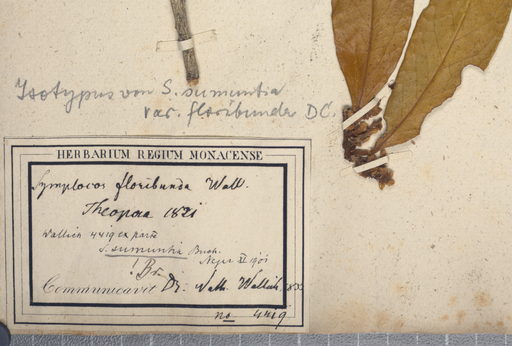 Isotypus von S. sumuntia
var. floribunda DC.
HERBARIUM REGIUM MONACENSE
Symplocos floribunda Wall.
1821
Wallich 4419 ex parte
S. sumuntia Buch.
! Br.
Communicavit Dr. Nath. Wallich,
no 4419